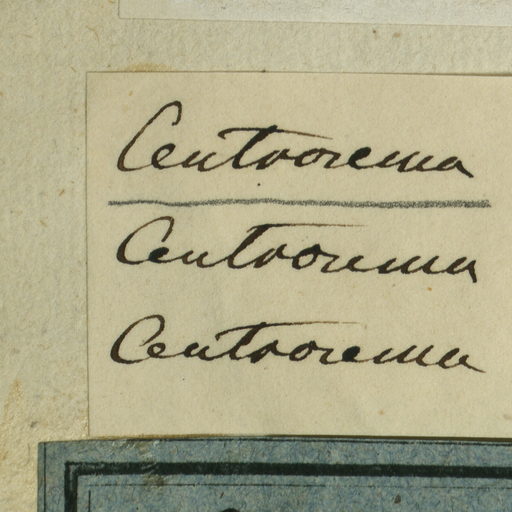 Centronema
Centronema
Centronema